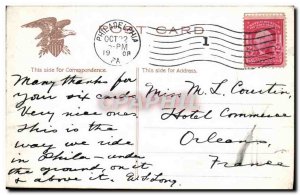 POST CARD
PHILADELPHIA
OCT 22
-PM
19 08
PA
1
This side for Correspondence.
This side for Address.
Many thanks for
your six cards
Very nice ones
This is the
way we ride
in Phila - under
the ground, on it
& above it. W S Long
Miss M. L. Courtin,
Hotel Commerce
Orleans,
France